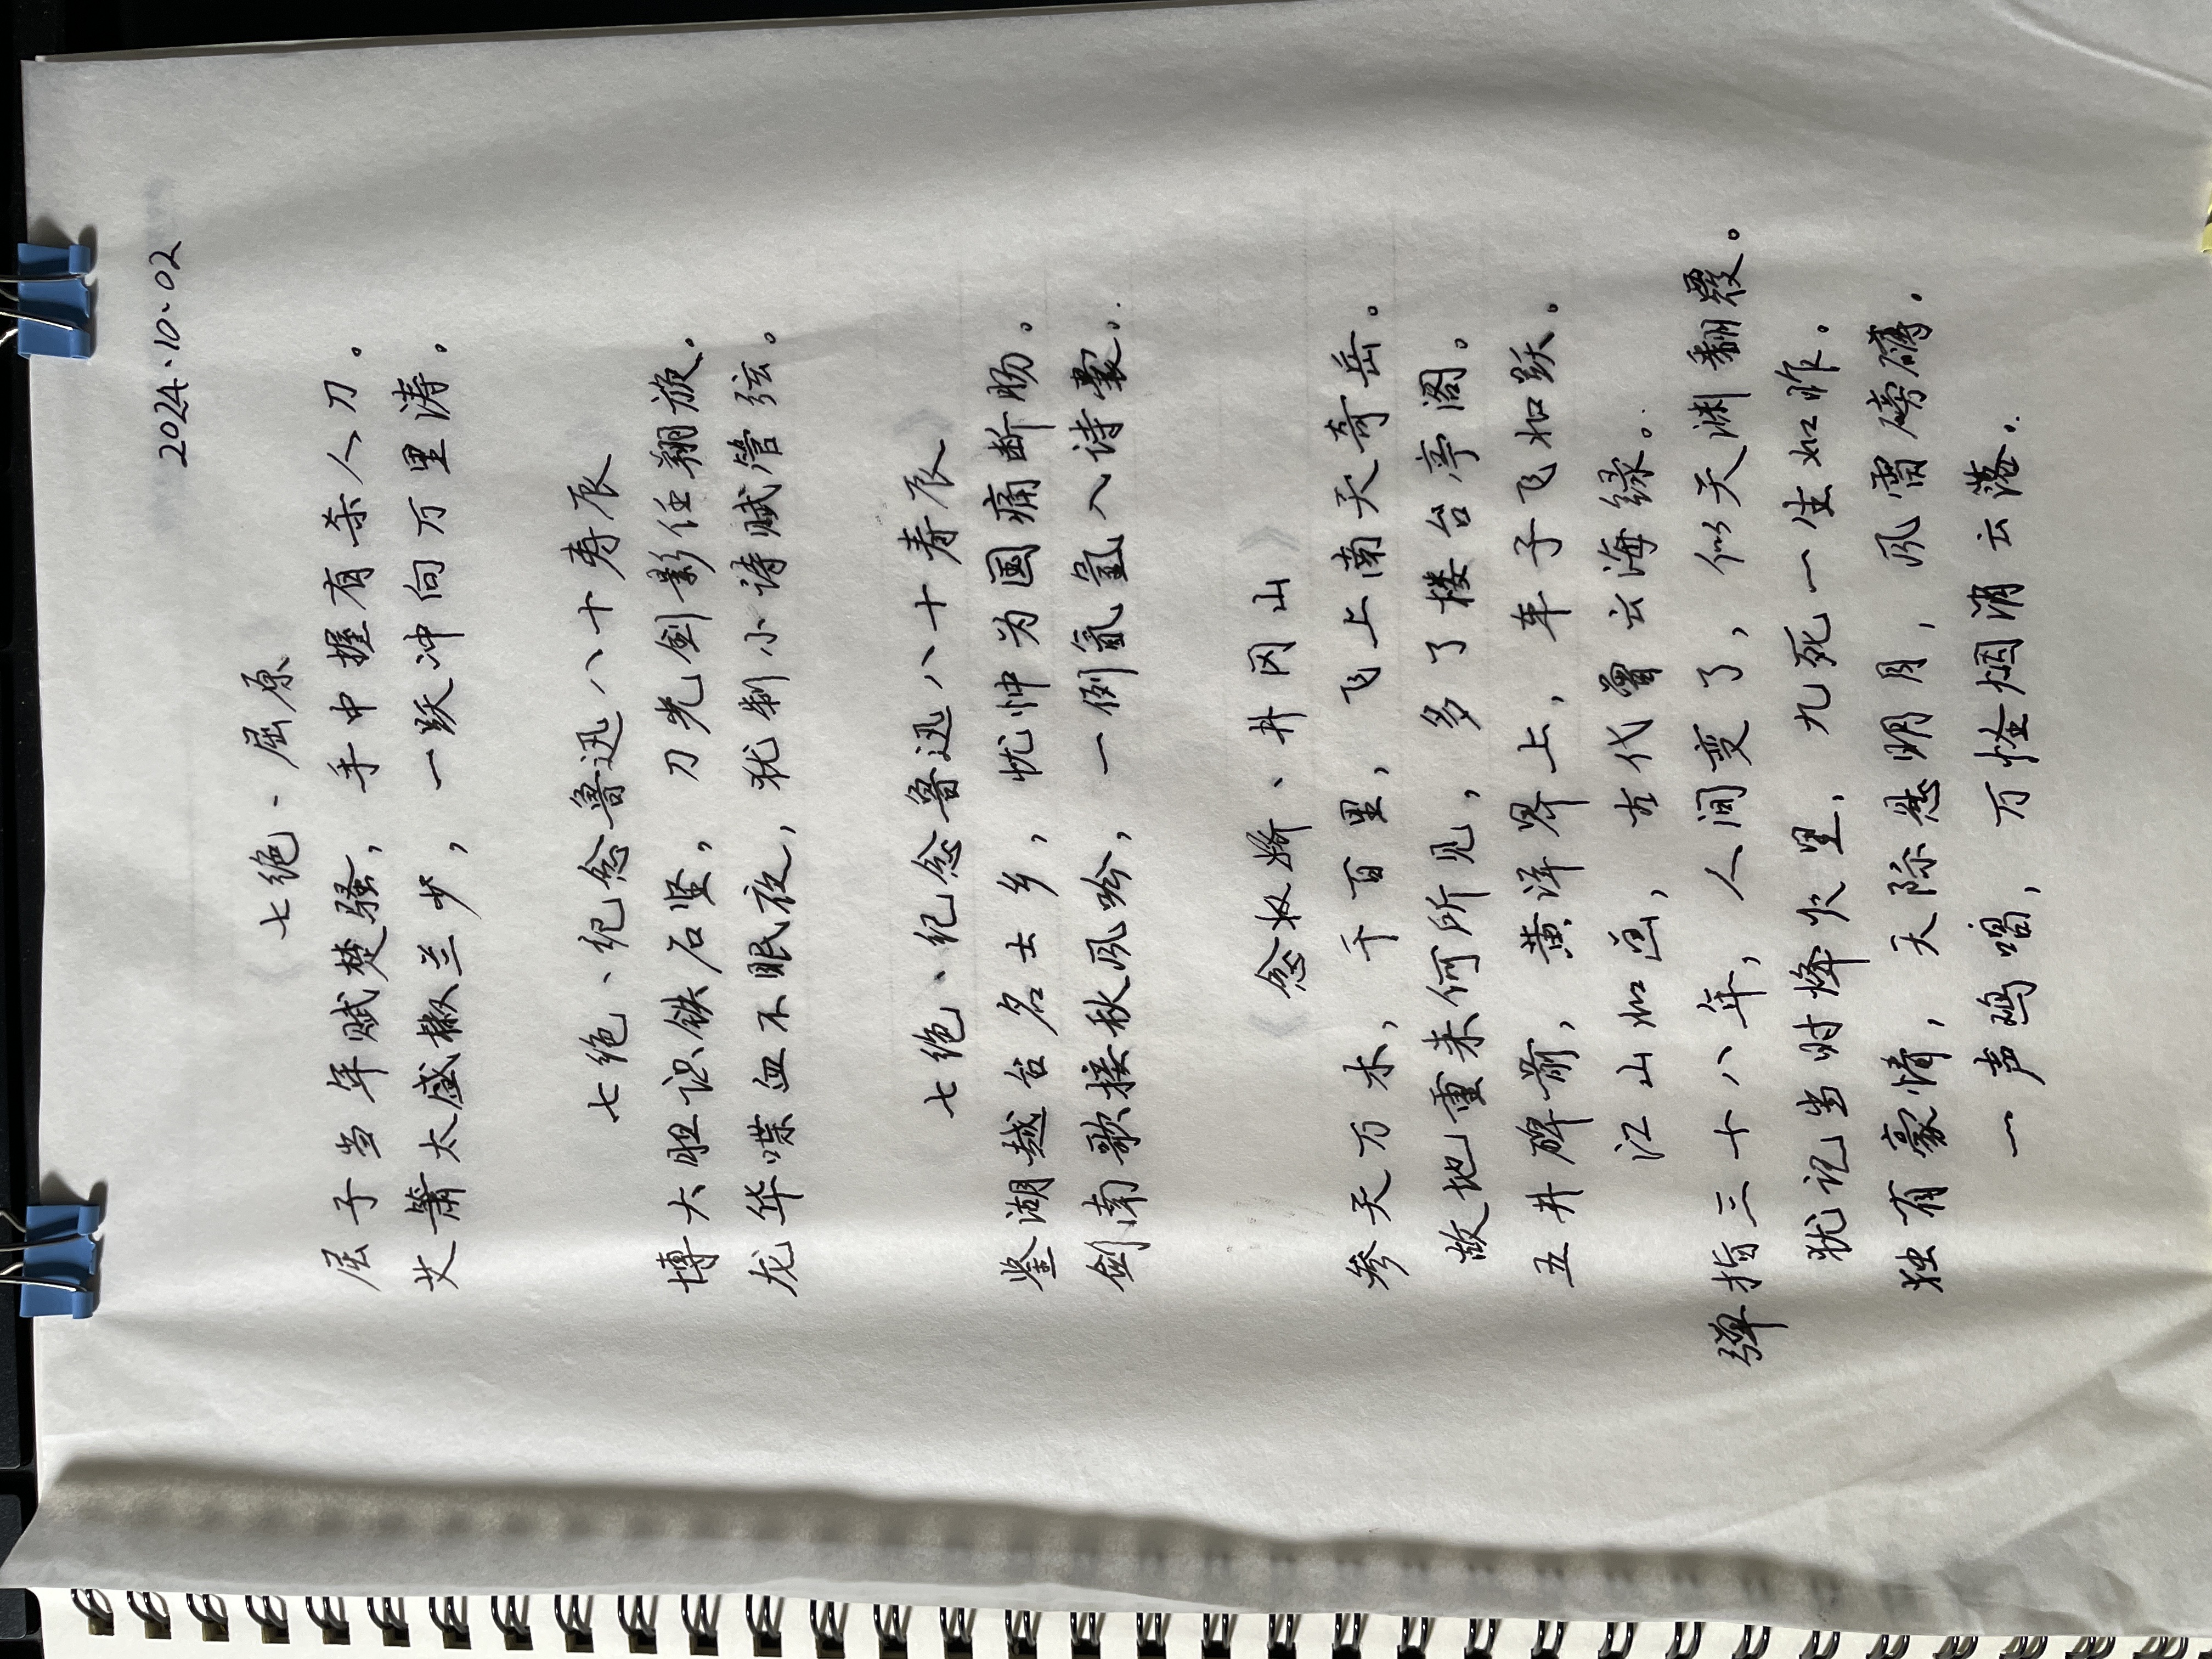 2024.10.02
七绝·屈原
屈子当年赋楚骚，手中握有杀人刀。
艾萧太盛椒兰少，一跃冲向万里涛。
七绝、纪念鲁迅八十寿辰
博大胆识铁石坚，刀光剑影任翔旋。
龙华喋血不眠夜，犹制小诗赋管弦。
七绝、纪念鲁迅八十寿辰
鉴湖越台名士乡，忧忡为国痛断肠。
剑南歌接秋风吟，一例氤氲入诗囊。
《念奴娇、井冈山》
参天万木，千百里，飞上南天奇岳。
故地重来何所见，多了楼台亭阁。
五井碑前，黄洋界上，车子飞如跃。
江山如画，古代曾云海绿。
弹指三十八年，人间变了，似天渊翻覆。
犹记当时烽火里，九死一生如昨。
独有豪情，天际悬明月，风雷磅礴。
一声鸡唱，万怪烟消云落。